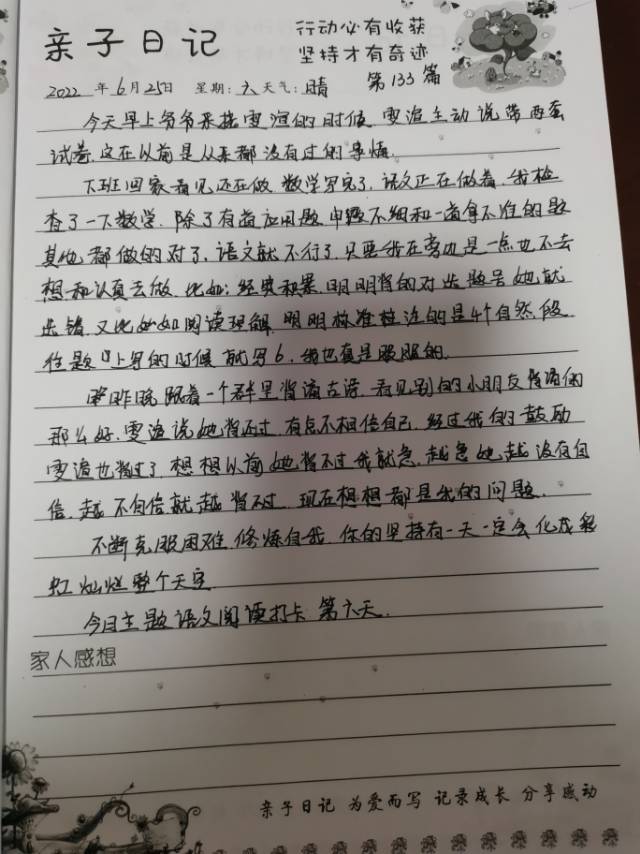 亲子日记
行动必有收获
坚持才有奇迹
2022 年 6 月 25 日 星期: 六 天气: 晴 第 133 篇
今天早上爷爷来接雯渲的时候,雯渲主动说带两套
试卷,这在以前是从来都没有过的事情.
下班回家看见还在做,数学写完了,语文正在做着,我检
查了一下数学,除了有道应用题审题不细和一道拿不准的题
其他都做的对了,语文就不行了,只要我在旁边是一点也不去
想和认真去做,比如:经典积累,明明背的对,出题号她就
出错,又比如阅读理解,明明标准标注的是4个自然段
往题上写的时候就写6,我也真是服服的.
昨晚跟着一个群里背诵古诗,看见别的小朋友背诵的
那么好,雯渲说她背不过,有点不相信自己,经过我的鼓励
雯渲也背过了,想想以前她背不过我就急,越急她越没有自
信,越不自信就越背不过,现在想想都是我的问题.
不断克服困难,修炼自我,你的坚持有一天一定会化成彩
虹灿烂整个天空
今日主题语文阅读打卡 第六天.
家人感想
亲子日记 为爱而写 记录成长 分享感动